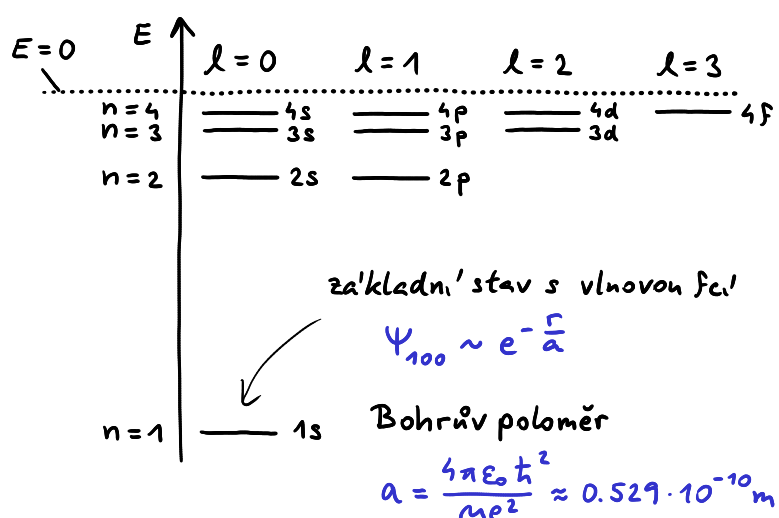 E = 0 E l = 0 l = 1 l = 2 l = 3
n = 4 4s 4p 4d 4f
n = 3 3s 3p 3d
n = 2 2s 2p
základní stav s vlnovou fcí
Ψ₁₀₀ ~ e^(-r/a)
n = 1 1s Bohrův poloměr
a = 4πε₀ħ²/me² ≈ 0.529 · 10⁻¹⁰ m